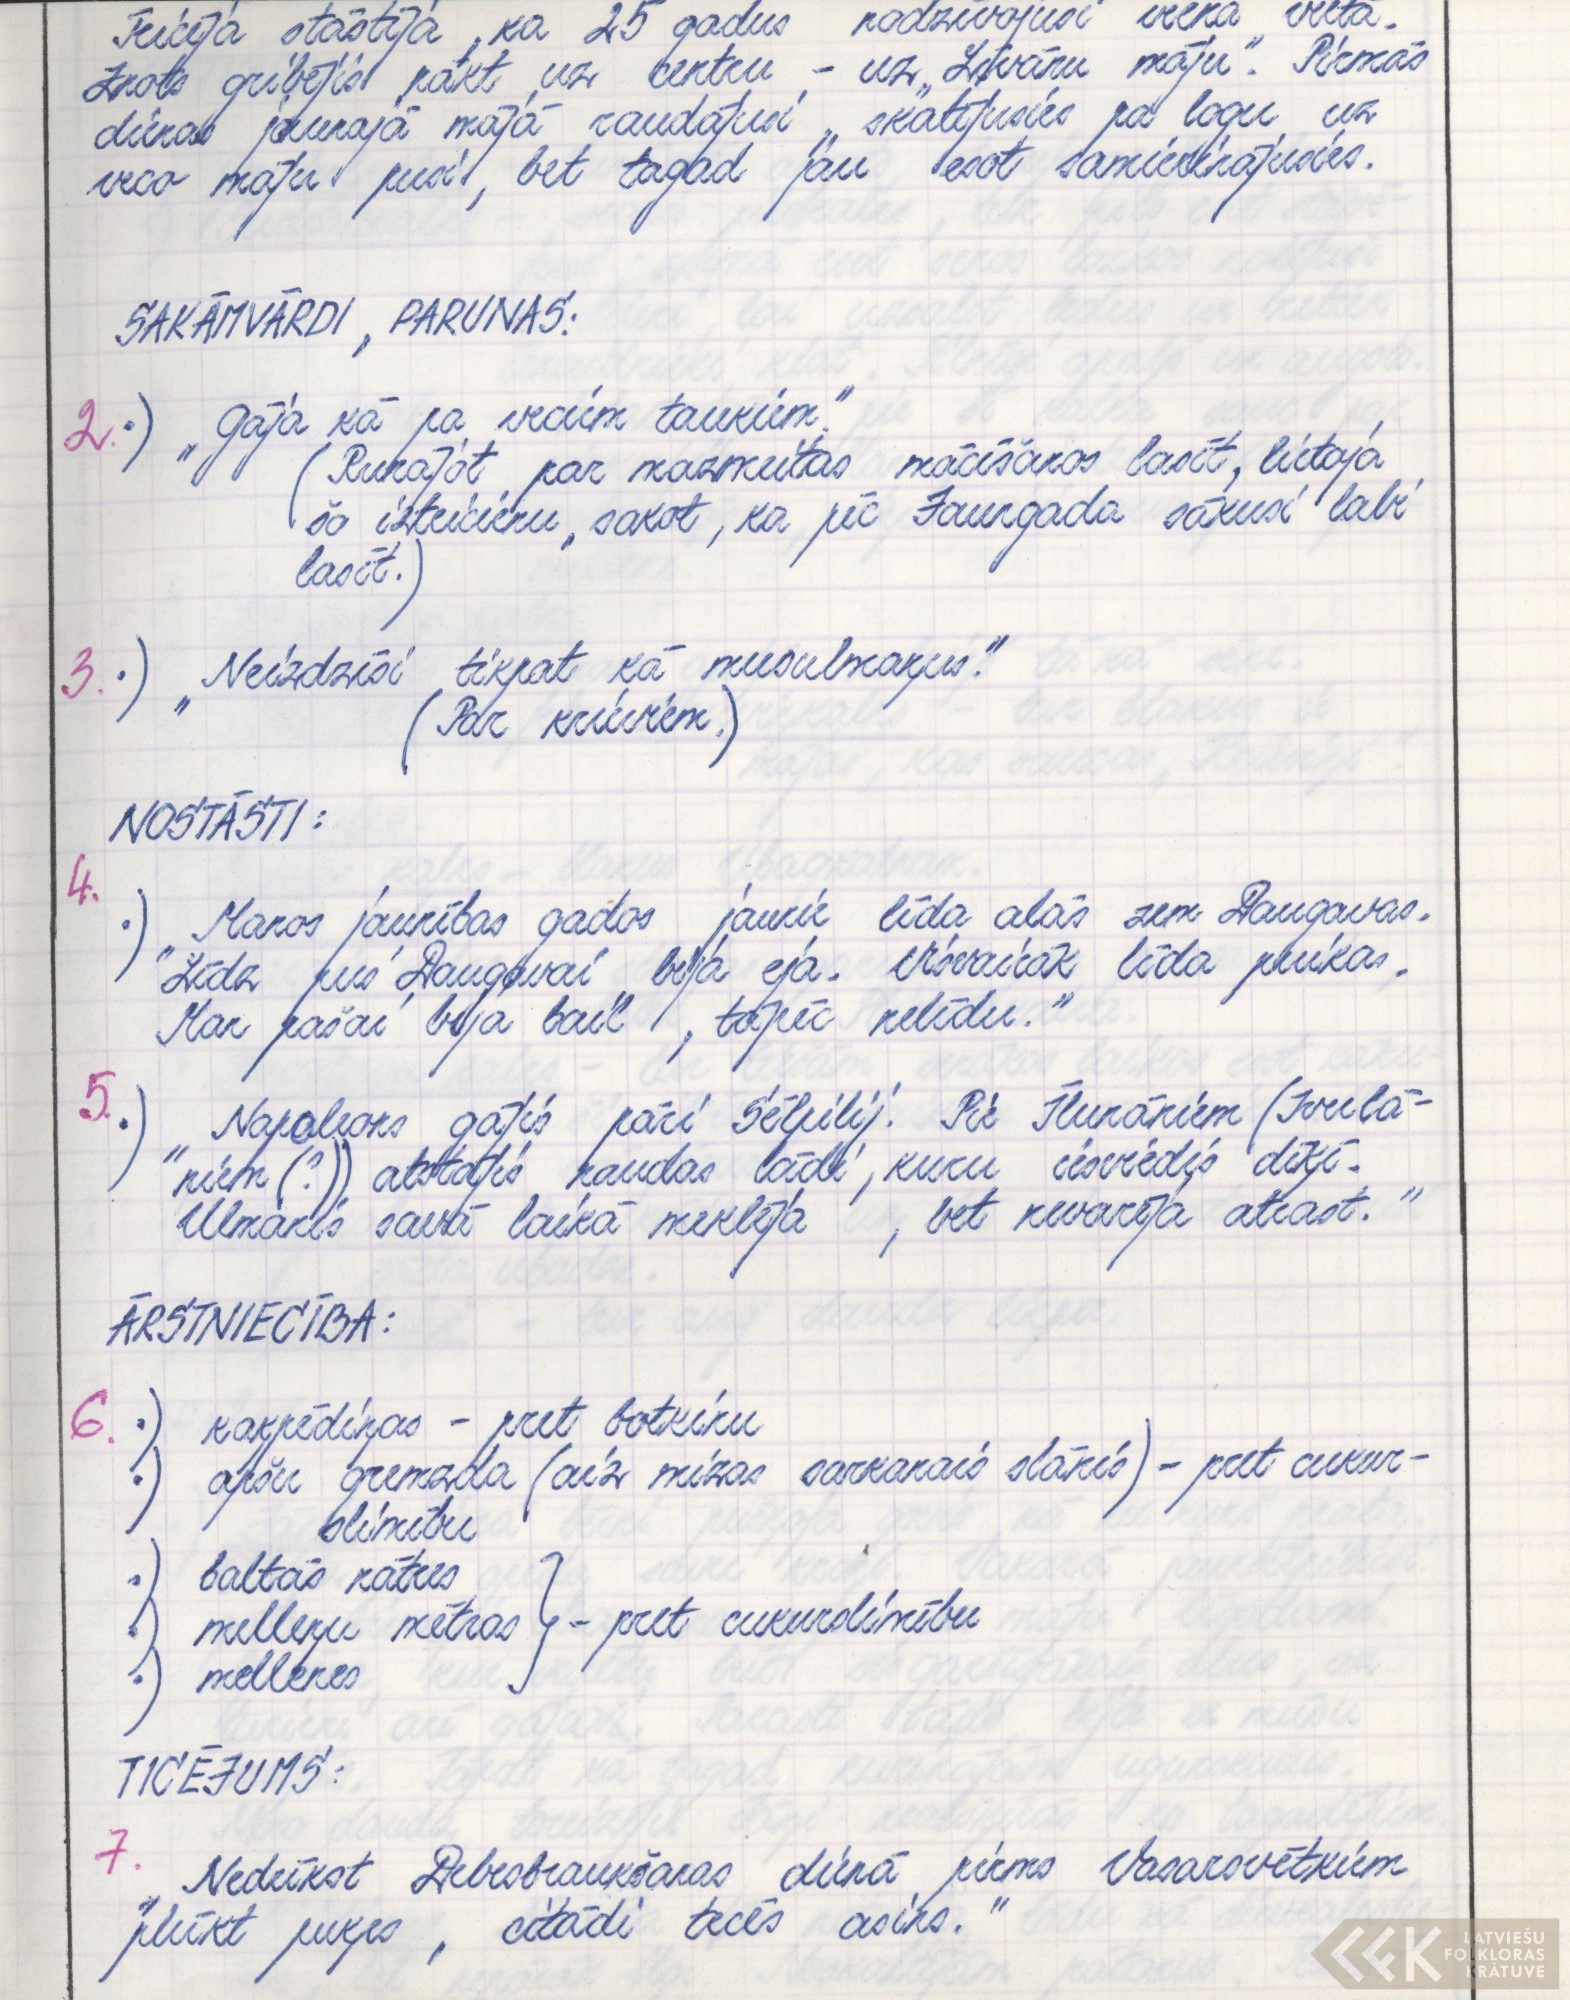 Teicēja stāstīja, ka 25 gadus nodzīvojusi vienā vietā.
Znots gribējis nākt uz centru - uz „Līvānu māju". Pirmās
dienas jaunajā mājā raudājusi, skatījusies pa logu uz
veco māju pusi, bet tagad jau esot samierinājusies.
SAKĀMVĀRDI, PARUNAS:
2. •) „Gāja kā pa veciem taukiem."
(Runājot par mazmeitas mācīšanos lasīt, lietoja
šo izteicienu, sakot, ka pēc Jaungada sākusi labi
lasīt.)
3. •) „Neizdzīsi tikpat kā musulmaņus."
(Par krieviem.)
NOSTĀSTI:
4.
•) „Manos jaunības gados jaunie līda alās zem Daugavas.
Līdz pus Daugavai bija eja. Visvairāk līda puikas.
Man pašai bija bail, tāpēc nelīdu."
5. •) „Napoleons gājis pāri Sēlpilij. Pie Ilunāniem (Ivulā-
niem (?)) atstājis naudas lādi, kuru iesviedis dīķī.
Ulmanis savā laikā meklēja, bet nevarēja atrast."
ĀRSTNIECĪBA:
6. •) kaķpēdiņas - pret botkinu
•) apšu gremzda (aiz mizas sarkanais slānis) - pret cukur-
slimību
•) baltās nātres
•) melleņu mētras } - pret cukurslimību
•) mellenes
TICĒJUMS:
7. „Nedrīkst Debesbraukšanas dienā pirms Vasarsvētkiem
plūkt puķes, citādi tecēs asins."
LATVIEŠU
FOLKLORAS
KRĀTUVE